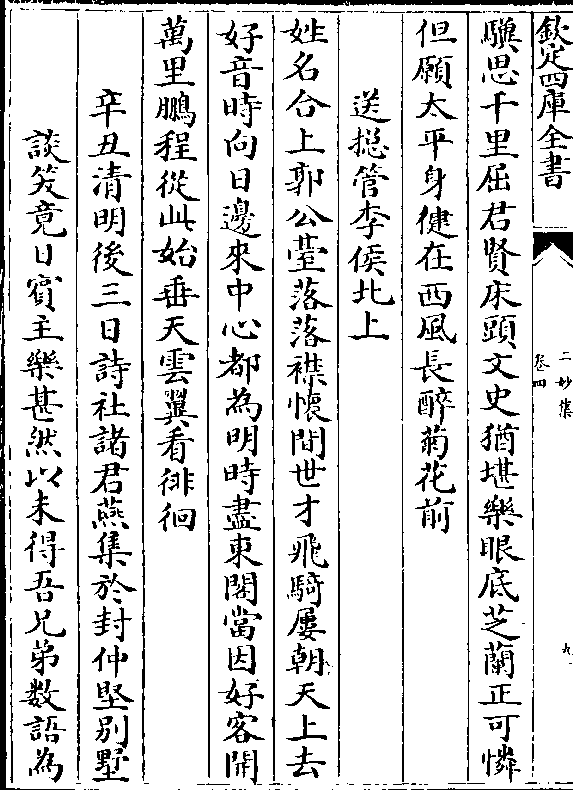 欽定四庫全書
二妙集
卷四
九
驥思千里屈君賢床頭文史猶堪樂眼底芝蘭正可憐
但願太平身健在西風長醉菊花前
送揔管李侯北上
姓名合上郭公臺落落襟懷間世才飛騎屢朝天上去
好音時向日邊來中心都為明時盡東閣當因好客開
萬里鵬程從此始垂天雲翼看徘徊
辛丑清明後三日詩社諸君燕集於封仲堅别墅
談笑竟日賓主樂甚然以未得吾兄弟数語為